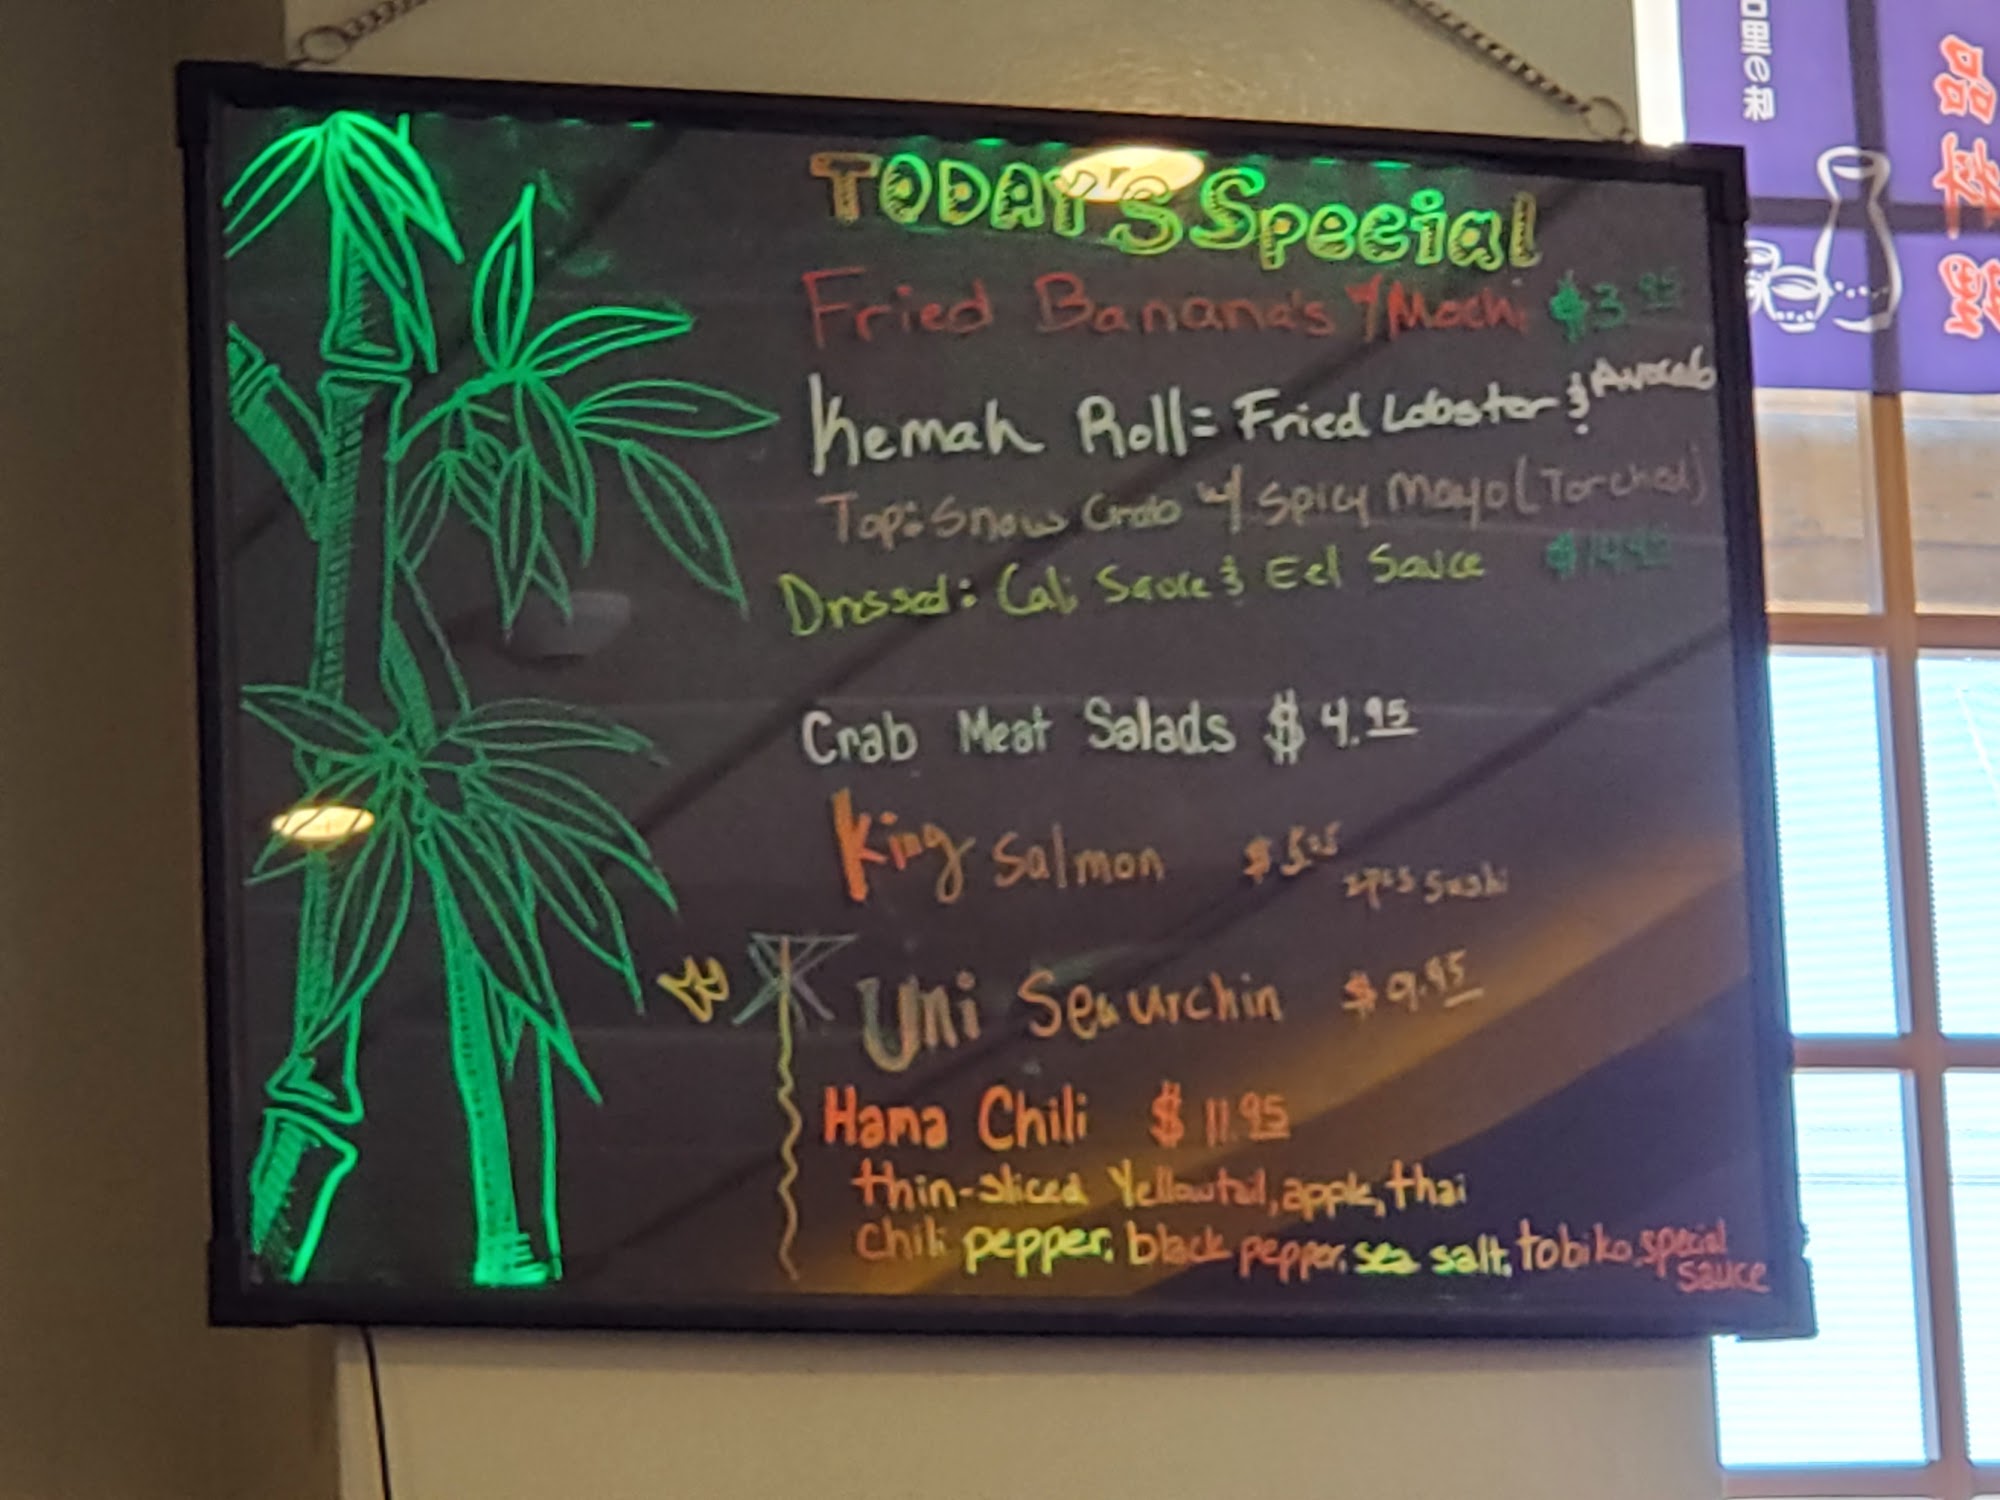 TODAY'S Special
Fried Banana's Y Mochi $3.95
Kemah Roll = Fried Lobster & Avocab
Top: Snow Crab w/ Spicy Mayo (Torched)
Dressed: Cali Sauce & Eel Sauce $14.95
Crab Meat Salads $4.95
King Salmon
2pcs Sushi
Uni Sea urchin $9.95
Hama Chili $11.95
thin-sliced Yellowtail, apple, thai
chili pepper, black pepper, sea salt, tobiko, special
sauce